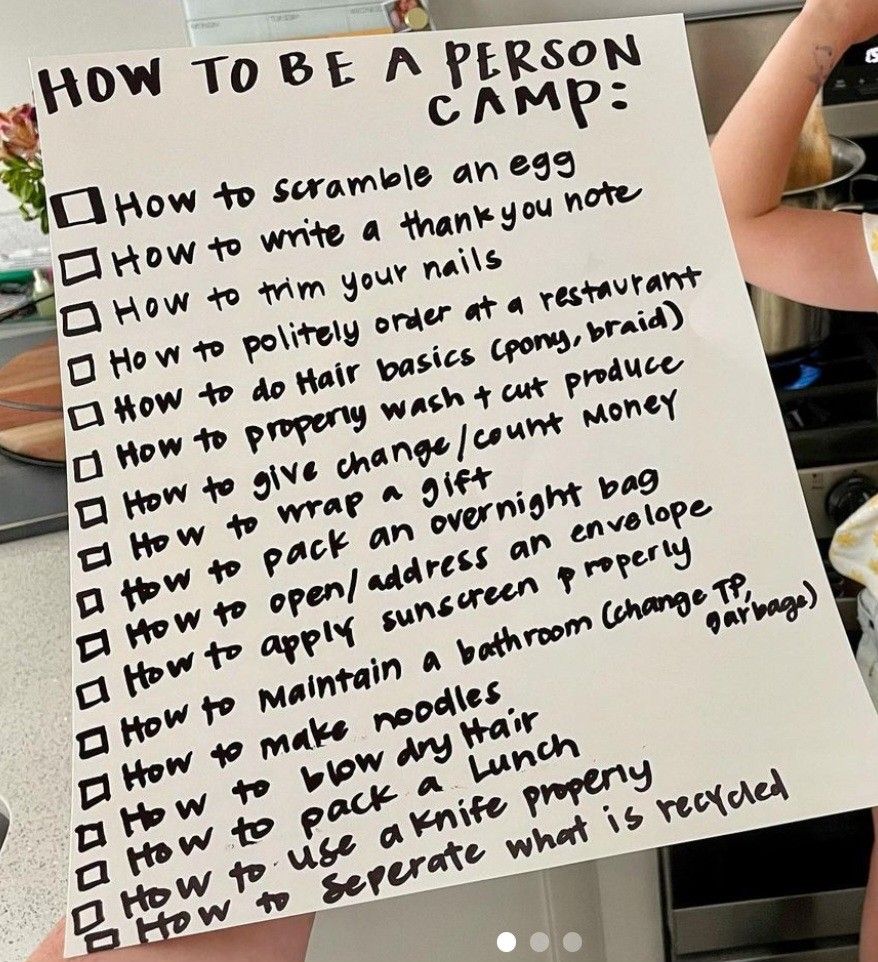 HOW TO BE A PERSON
CAMP:
How to scramble an egg
How to write a thank you note
How to trim your nails
How to politely order at a restaurant
How to do Hair basics (pony, braid)
How to properly wash + cut produce
How to give change/count money
How to wrap a gift
How to pack an overnight bag
How to open/address an envelope
How to apply sunscreen properly
How to maintain a bathroom (change TP,
garbage)
How to make noodles
How to blow dry Hair
How to pack a Lunch
How to use a knife properly
How to seperate what is recycled